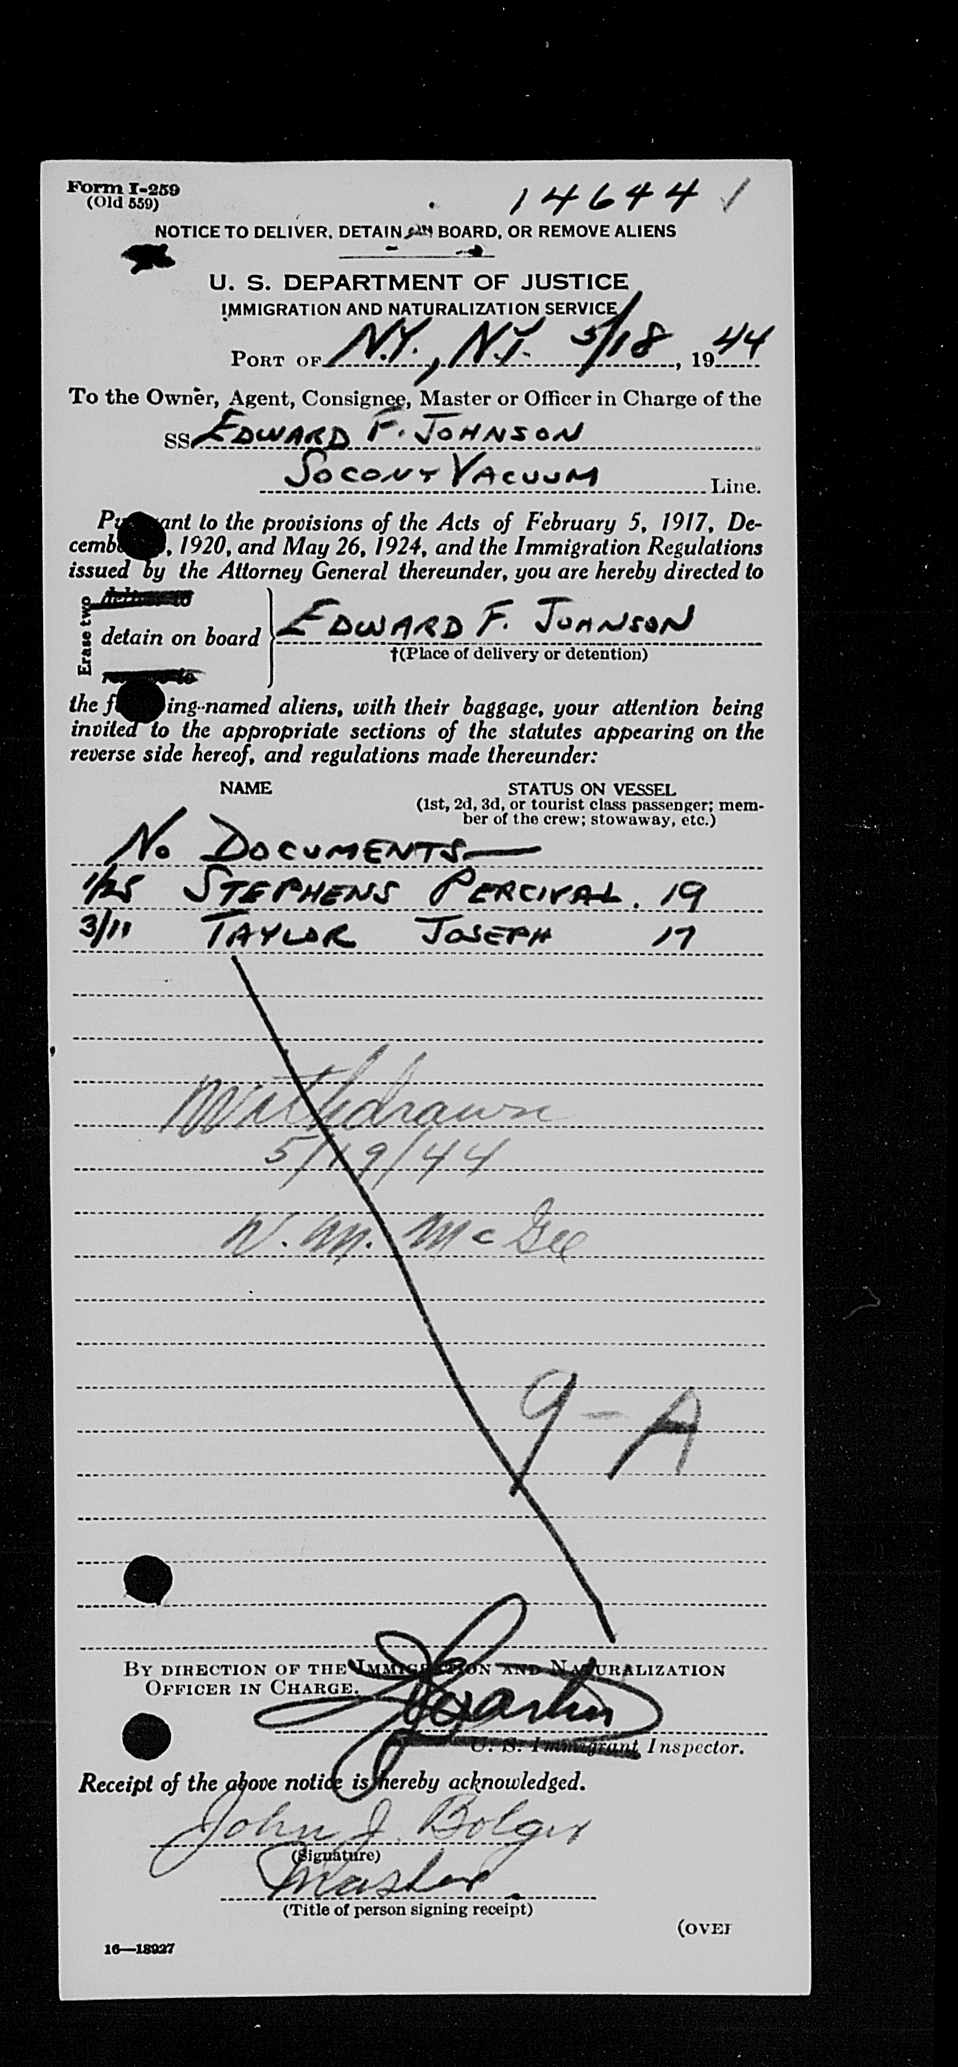 Form I-259
(Old 559)
14644 ✓
NOTICE TO DELIVER, DETAIN ON BOARD, OR REMOVE ALIENS
U. S. DEPARTMENT OF JUSTICE
IMMIGRATION AND NATURALIZATION SERVICE
PORT OF N.Y., N.Y. 5/18, 1944
To the Owner, Agent, Consignee, Master or Officer in Charge of the
SS EDWARD F. JOHNSON
SOCONY VACUUM Line.
Pursuant to the provisions of the Acts of February 5, 1917, De-
cemb , 1920, and May 26, 1924, and the Immigration Regulations
issued by the Attorney General thereunder, you are hereby directed to
Erase two
deliver to
detain on board
remove to
EDWARD F. JOHNSON
†(Place of delivery or detention)
the following-named aliens, with their baggage, your attention being
invited to the appropriate sections of the statutes appearing on the
reverse side hereof, and regulations made thereunder:
NAME STATUS ON VESSEL
(1st, 2d, 3d, or tourist class passenger; mem-
ber of the crew; stowaway, etc.)
NO DOCUMENTS—
1/25 STEPHENS PERCIVAL. 19
3/11 TAYLOR JOSEPH 17
Withdrawn
5/19/44
W. M. McGee
9-A
BY DIRECTION OF THE IMMIGRATION AND NATURALIZATION
OFFICER IN CHARGE.
U. S. Immigrant Inspector.
Receipt of the above notice is hereby acknowledged.
John J. Bolger
(Signature)
Master.
(Title of person signing receipt)
(OVER
16—18927